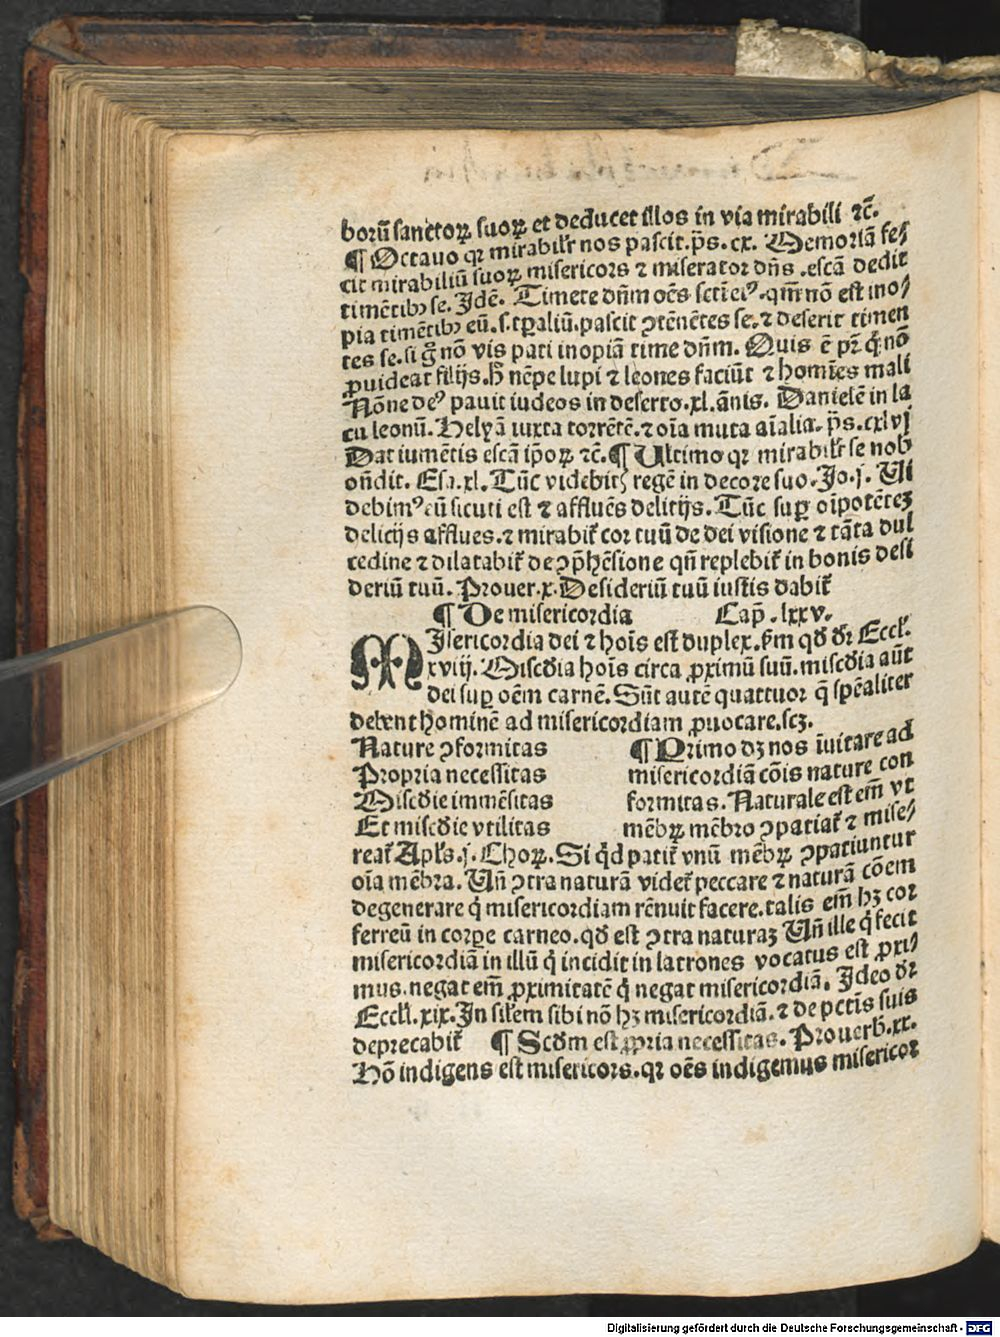 borū sanctoꝝ suoꝝ et deducet illos in via mirabili ⁊c̄.
¶ Octauo qꝛ mirabilr̄ nos pascit. p̄s. cx. Memoriā fe⸗
cit mirabiliū suoꝝ misericors ⁊ miserator dn̄s. escā dedit
timētibꝫ se. Idē. Timete dn̄m oēs scti eiꝰ. qm̄ nō est ino⸗
pia timētibꝫ eū. s. tꝑaliū. pascit ꝯtēnētes se. ⁊ deserit timen
tes se. si gͦ nō vis pati inopiā time dn̄m. Quis ē pr̄ q̇ nō
ꝓuideat filijs. h̄ nēpe lupi ⁊ leones faciūt ⁊ homīes mali
Nōne deꝰ pauit iudeos in deserto. xl. ānis. Danielē in la
cu leonū. Helyā iuxta torrētē. ⁊ oīa muta aīalia. p̄s. cxlvj
Dat iumētis escā ip̄oꝝ ⁊c̄. ¶ Ultimo qꝛ mirabilr̄ se nob̄
on̄dit. Esa. xl. Tūc videbitꝭ regē in decore suo. Jo. j. Vi
debimꝰ eū sicuti est ⁊ affluēs delitijs. Tūc suꝑ oīpotēteꝫ
delicijs afflues. ⁊ mirabit̄ cor tuū de dei visione ⁊ tāta dul
cedine ⁊ dilatabit̄ de ꝯp̄hēsione qn̄ replebit̄ in bonis desi
deriū tuū. Prouer. x. Desideriū tuū iustis dabit̄
¶ De misericordia Cap̄. lxxv.
Misericordia dei ⁊ hoīs est duplex. ẜm qd̄ dr̄ Eccl̄.
xviij. Miscd̄ia hoīs circa ꝓximū suū. miscd̄ia aūt
dei suꝑ oēm carnē. Sūt autē quattuor q̄ spēaliter
debent hominē ad misericordiam ꝓuocare. scꝫ.
Nature ꝯformitas
Propria necessitas
Miscd̄ie immēsitas
Et miscd̄ie vtilitas
¶ Primo dꝫ nos īuitare ad
misericordiā cōis nature con
formitas. Naturale est em̄ vt
mēbꝝ mēbro ꝯpatiat̄ ⁊ mise⸗
reat̄ Apl̄s. j. Choꝝ. Si qͥd patit̄ vnū mēbꝝ ꝯpatiuntur
oīa mēbra. Vn̄ ꝯtra naturā videt̄ peccare ⁊ naturā cōem
degenerare q̇ misericordiam rēnuit facere. talis em̄ hꝫ cor
ferreū in corꝑe carneo. qd̄ est ꝯtra naturaꝫ Vn̄ ille q̇ fecit
misericordiā in illū q̇ incidit in latrones vocatus est ꝓxi⸗
mus. negat em̄ ꝓximitatē q̇ negat misericordiā. Ideo dr̄
Eccl̄i. xix. In sil̄em sibi nō hꝫ misericordiā. ⁊ de pctīs suis
deprecabit̄ ¶ Scd̄m est ꝓpria necessitas. Prouerb̄. xx.
Hō indigens est misericors. qꝛ oēs indigemus misericor
Digitalisierung gefördert durch die Deutsche Forschungsgemeinschaft - DFG